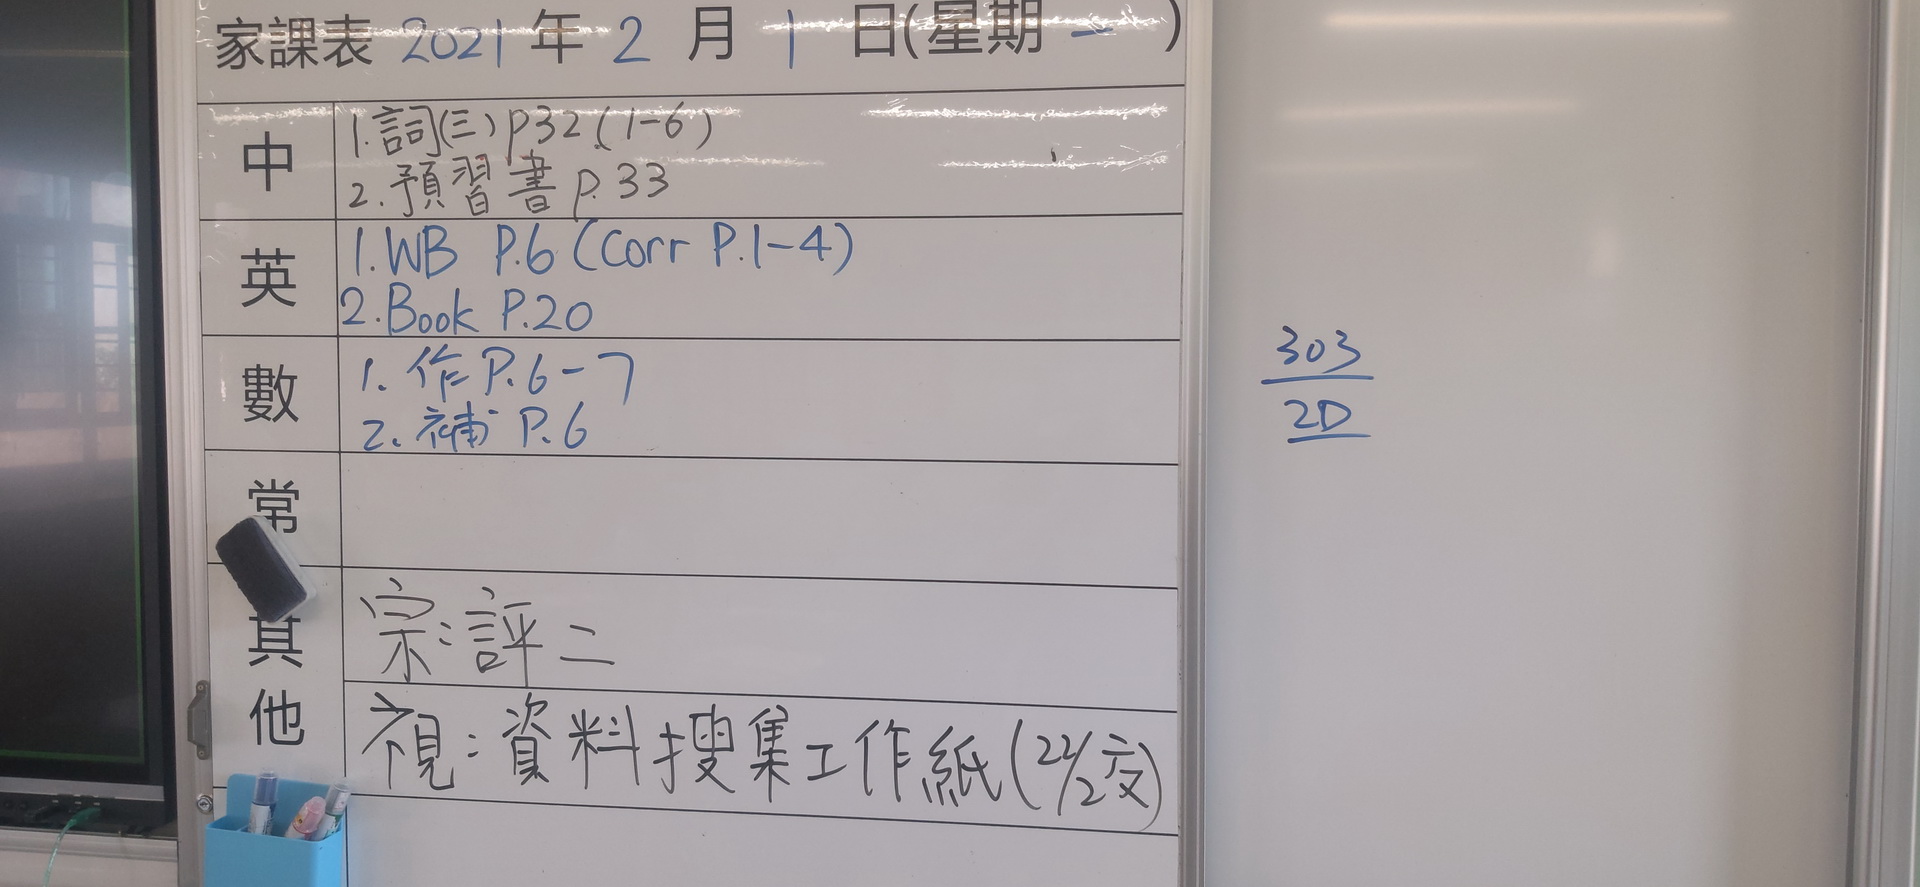 家課表 2021年2月1日(星期一)
中
1.詞(三)P32(1-6)
2.預習書 P.33
英
1.WB P.6 (Corr P.1-4)
2.Book P.20
數
1.作P.6-7
2.補P.6
常
其他
宗:評二
視:資料搜集工作紙(22/2交)
303
2D